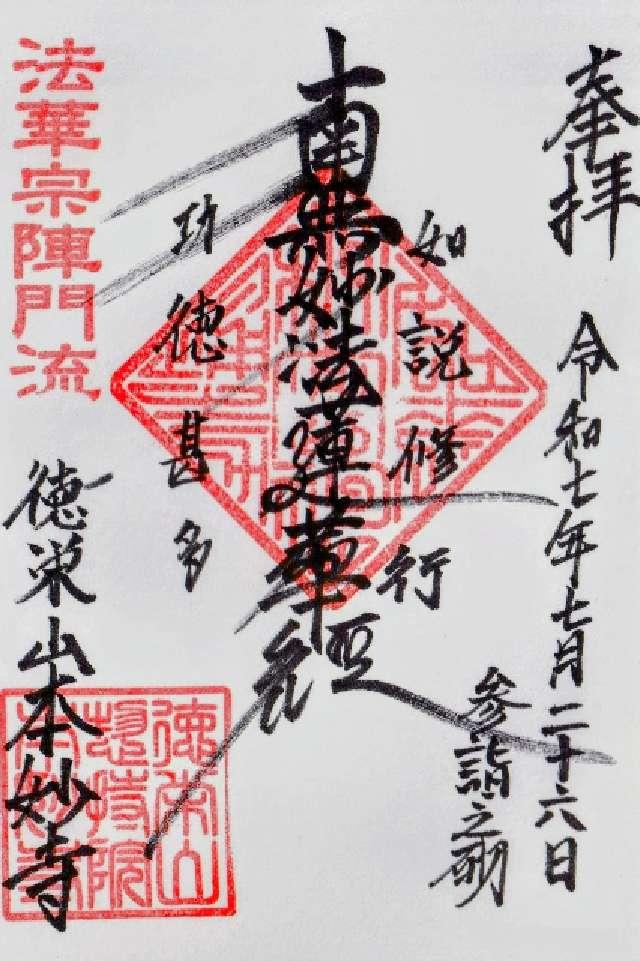 奉拝
令和七年七月二十六日
参詣之砌
如説修行
南無妙法蓮華経
功徳甚多
法華宗陣門流
徳栄山本妙寺
徳栄山
総持院
本妙寺